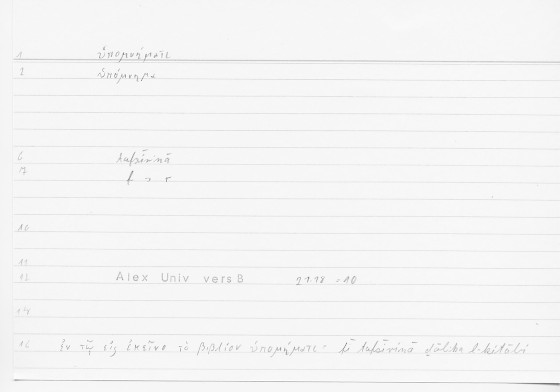 1 ὑπομνήματι
2 ὑπόμνημα
6 tafsīrinā
7 f s r
10
11
13 Alex Univ vers.B 21.18 - 20
14
16 ἐν τῷ εἰς ἐκεῖνο τὸ βιβλίον ὑπομνήματι - fī tafsīrinā ḏālika l-kitābi